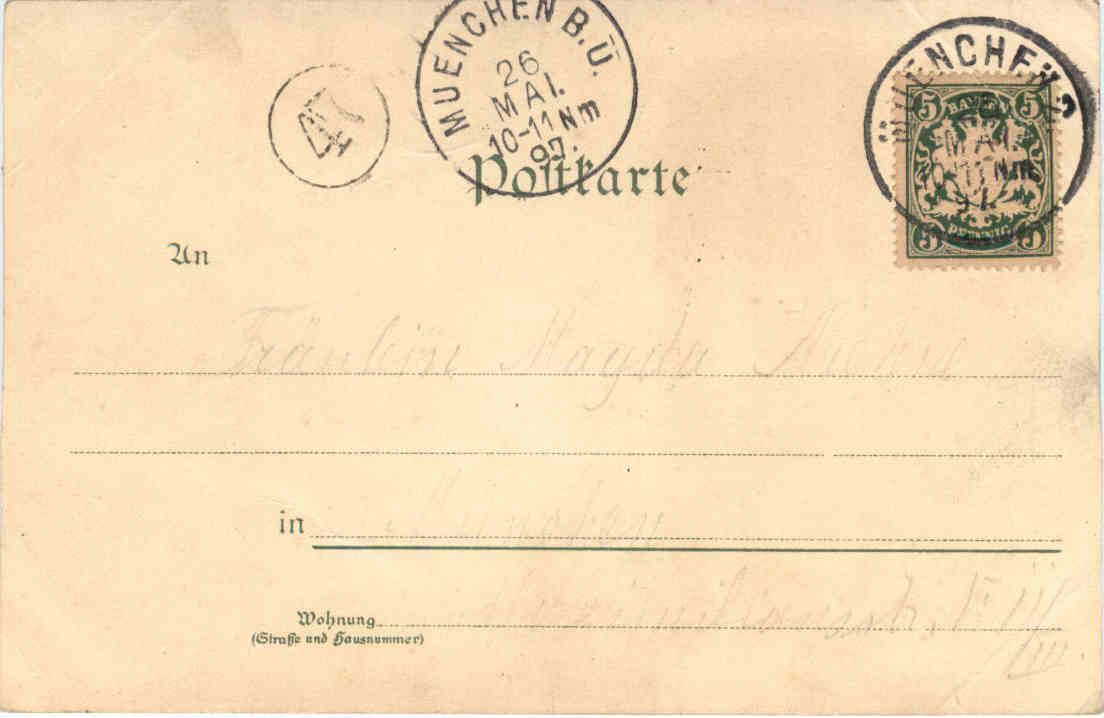 MUENCHEN B.Ü.
26
MAI.
10-11 Nm
97.
MUENCHEN
MAI.
10-11 Nm
97.
5 BAYERN 5
5 PFENNIG 5
Postkarte
An
Fräulein Magda
in München
Wohnung
(Straße und Hausnummer)